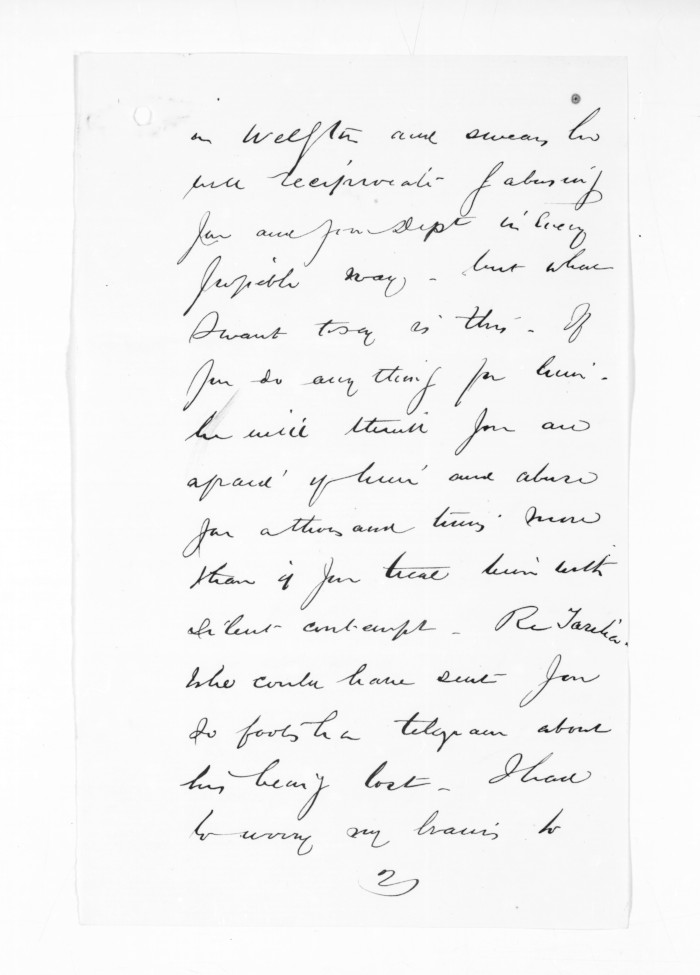 in Welgtn and swears he
will reciprocate by abusing
you and your Dept in every
possible way - but what
I want to say is this - If
you do anything for him -
he will think you are
afraid of him and abuse
you a thousand times more
than if you treat him with
silent contempt - Re Tareha.
Who could have sent you
so foolish a telegram about
his being lost - I had
to worry my brains to
2